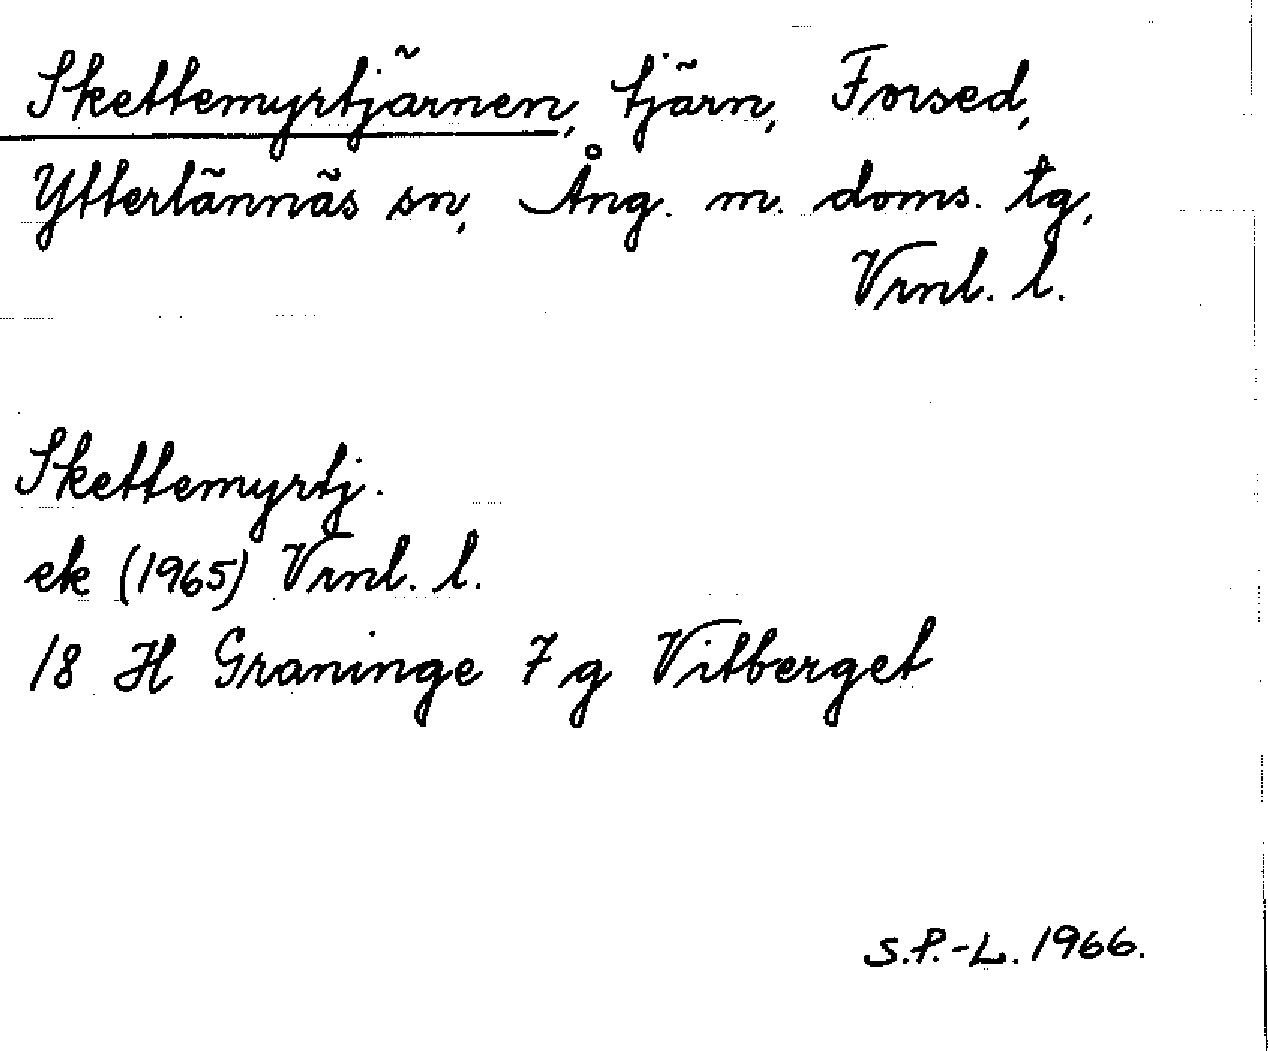 Skettemyrtjärnen, tjärn, Forsed,
Ytterlännäs sn, Ång. m. doms. tg,
Vrnl. l.
Skettemyrtj.
ek (1965) Vrnl. l.
18 H Graninge 7 g Vitberget
S.P.-L. 1966.